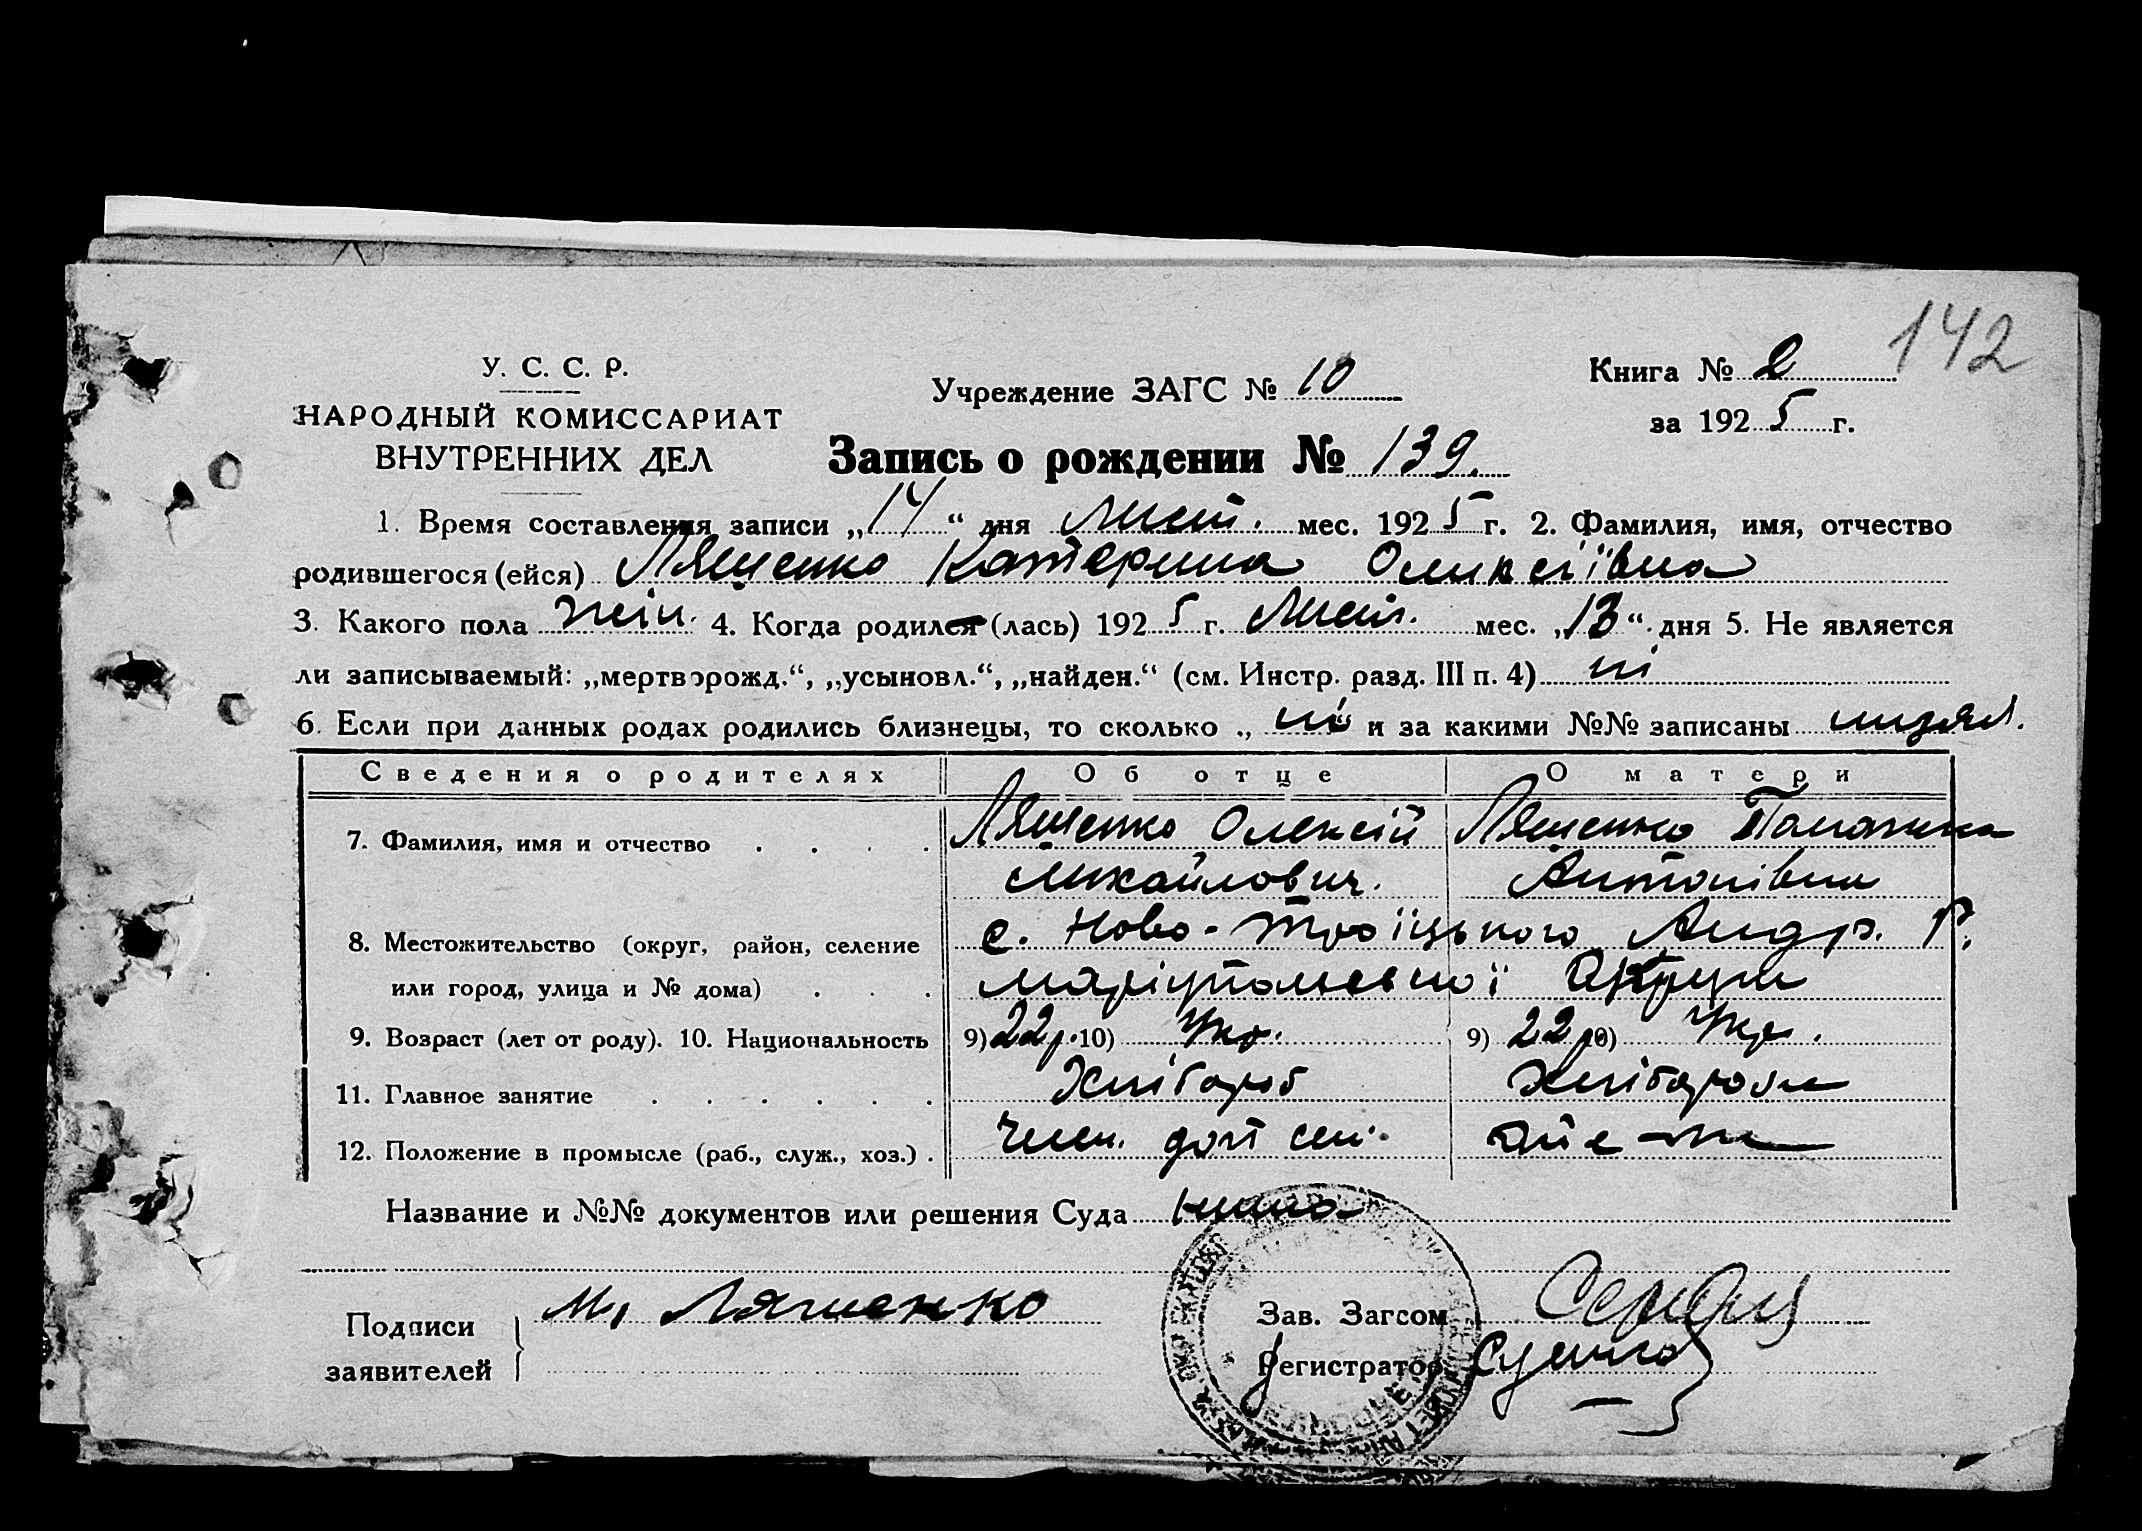 142
У. С. С. Р.
НАРОДНЫЙ КОМИССАРИАТ
ВНУТРЕННИХ ДЕЛ
Учреждение ЗАГС № 10
Книга № 2
за 1925 г.
Запись о рождении № 139.
1. Время составления записи „14“ дня Лист. мес. 1925 г. 2. Фамилия, имя, отчество
родившегося (ейся) Лященко Катерина Олексіївна
3. Какого пола жін. 4. Когда родился (лась) 1925 г. Лист. мес. „13“ дня 5. Не является
ли записываемый: „мертворожд.“, „усыновл.“, „найден.“ (см. Инстр. разд. III п. 4) ні
6. Если при данных родах родились близнецы, то сколько „ ні и за какими №№ записаны
Сведения о родителях Об отце О матери
7. Фамилия, имя и отчество Лященко Олексій Лященко
Михайлович. Антонівна
8. Местожительство (округ, район, селение с. Ново-Троїцького Андр. Р.
или город, улица и № дома) Маріупольської Округи
9. Возраст (лет от роду). 10. Национальность 9) 22 р. 10) Укр. 9) 22 р. 10) Укр.
11. Главное занятие Хлібороб Хліборобка
12. Положение в промысле (раб., служ., хоз.)
Название и №№ документов или решения Суда нима
Подписи
заявителей
М. Лященко
Зав. Загсом
Регистратор